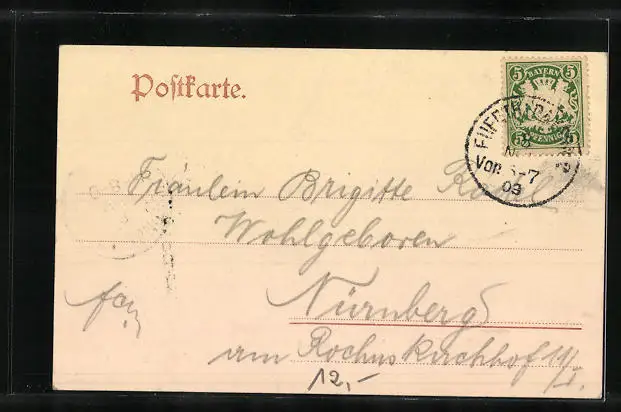 Postkarte.
5 BAYERN 5
PFENNIG
Vor. 6-7
09
Fräulein Brigitte
Wohlgeboren
Nürnberg
am Rochuskirchhof 11/I.
12,-